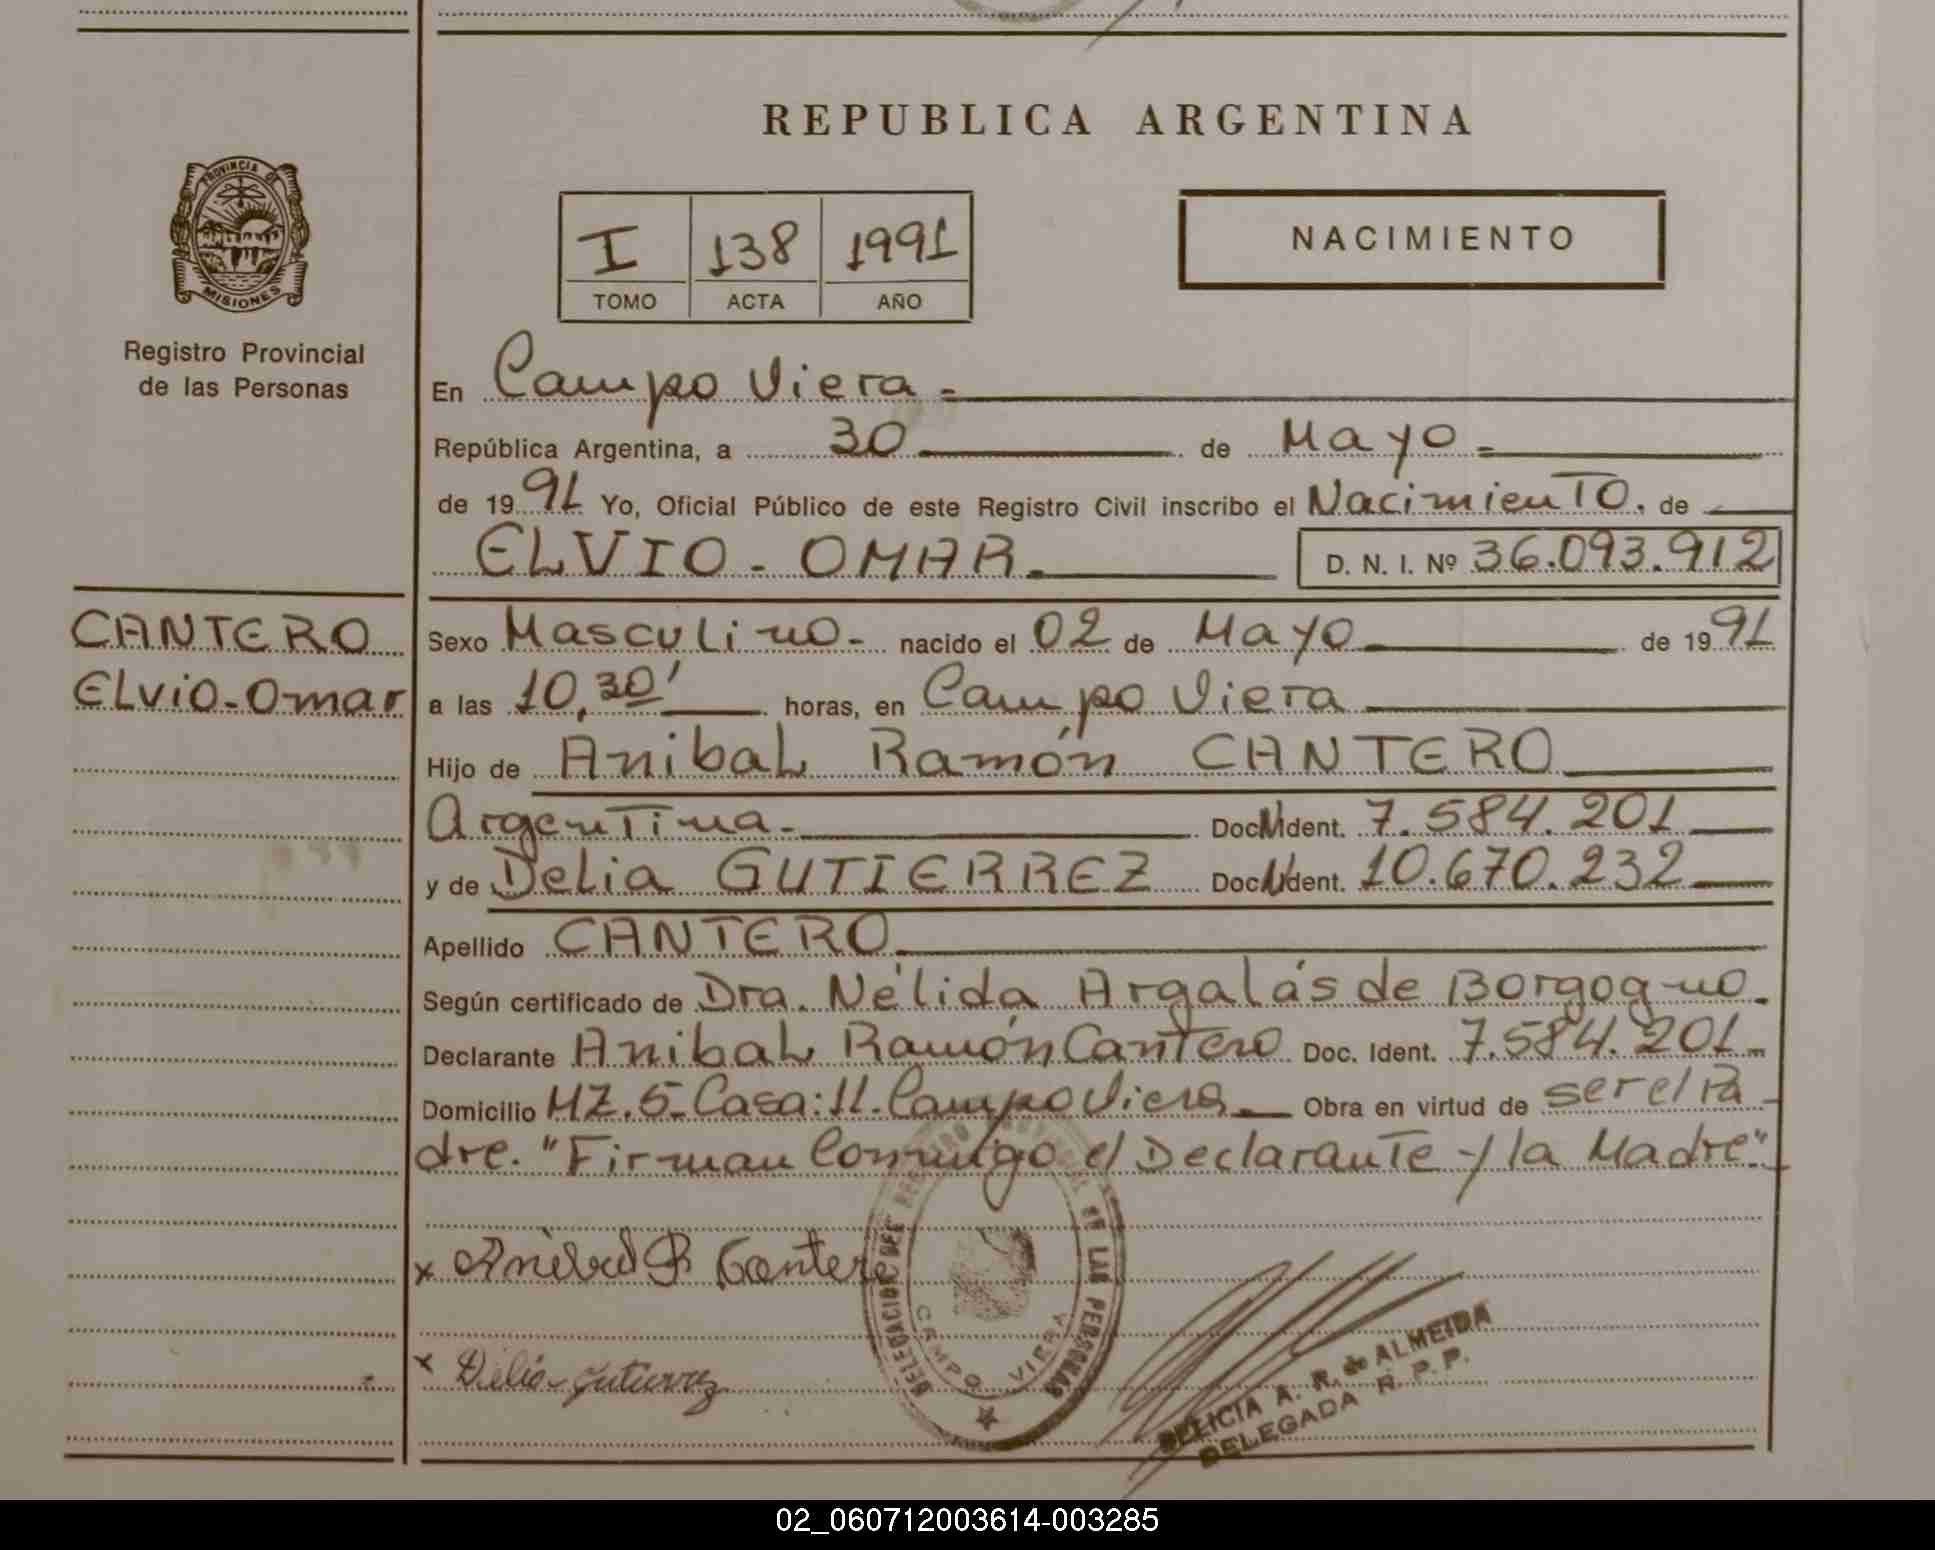 REPUBLICA ARGENTINA
PROVINCIA DE
MISIONES
Registro Provincial
de las Personas
I 138 1991
TOMO ACTA AÑO
NACIMIENTO
En Campo Viera
República Argentina, a 30 de Mayo
de 1991 Yo, Oficial Público de este Registro Civil inscribo el Nacimiento. de
ELVIO - OMAR D. N. I. Nº 36.093.912
CANTERO
ELVIO-Omar
Sexo Masculino - nacido el 02 de Mayo de 1991
a las 10,30' horas, en Campo Viera
Hijo de Anibal Ramón CANTERO
Argentina. Doc. Ident. 7.584.201
y de Delia GUTIERREZ Doc. Ident. 10.670.232
Apellido CANTERO
Según certificado de Dra. Nélida Argalás de Borgogno.
Declarante Anibal Ramón Cantero Doc. Ident. 7.584.201
Domicilio MZ.5-Casa:11.Campo Viera Obra en virtud de ser el Pa-
dre. "Firman Conmigo el Declarante y la Madre".
x Anibal R Cantero
x Delia Gutierrez
DELEGACION DEL REGISTRO PROVINCIAL DE LAS PERSONAS
CAMPO VIERA
DELICIA A. R. de ALMEIDA
DELEGADA R. P. P.
02_060712003614-003285